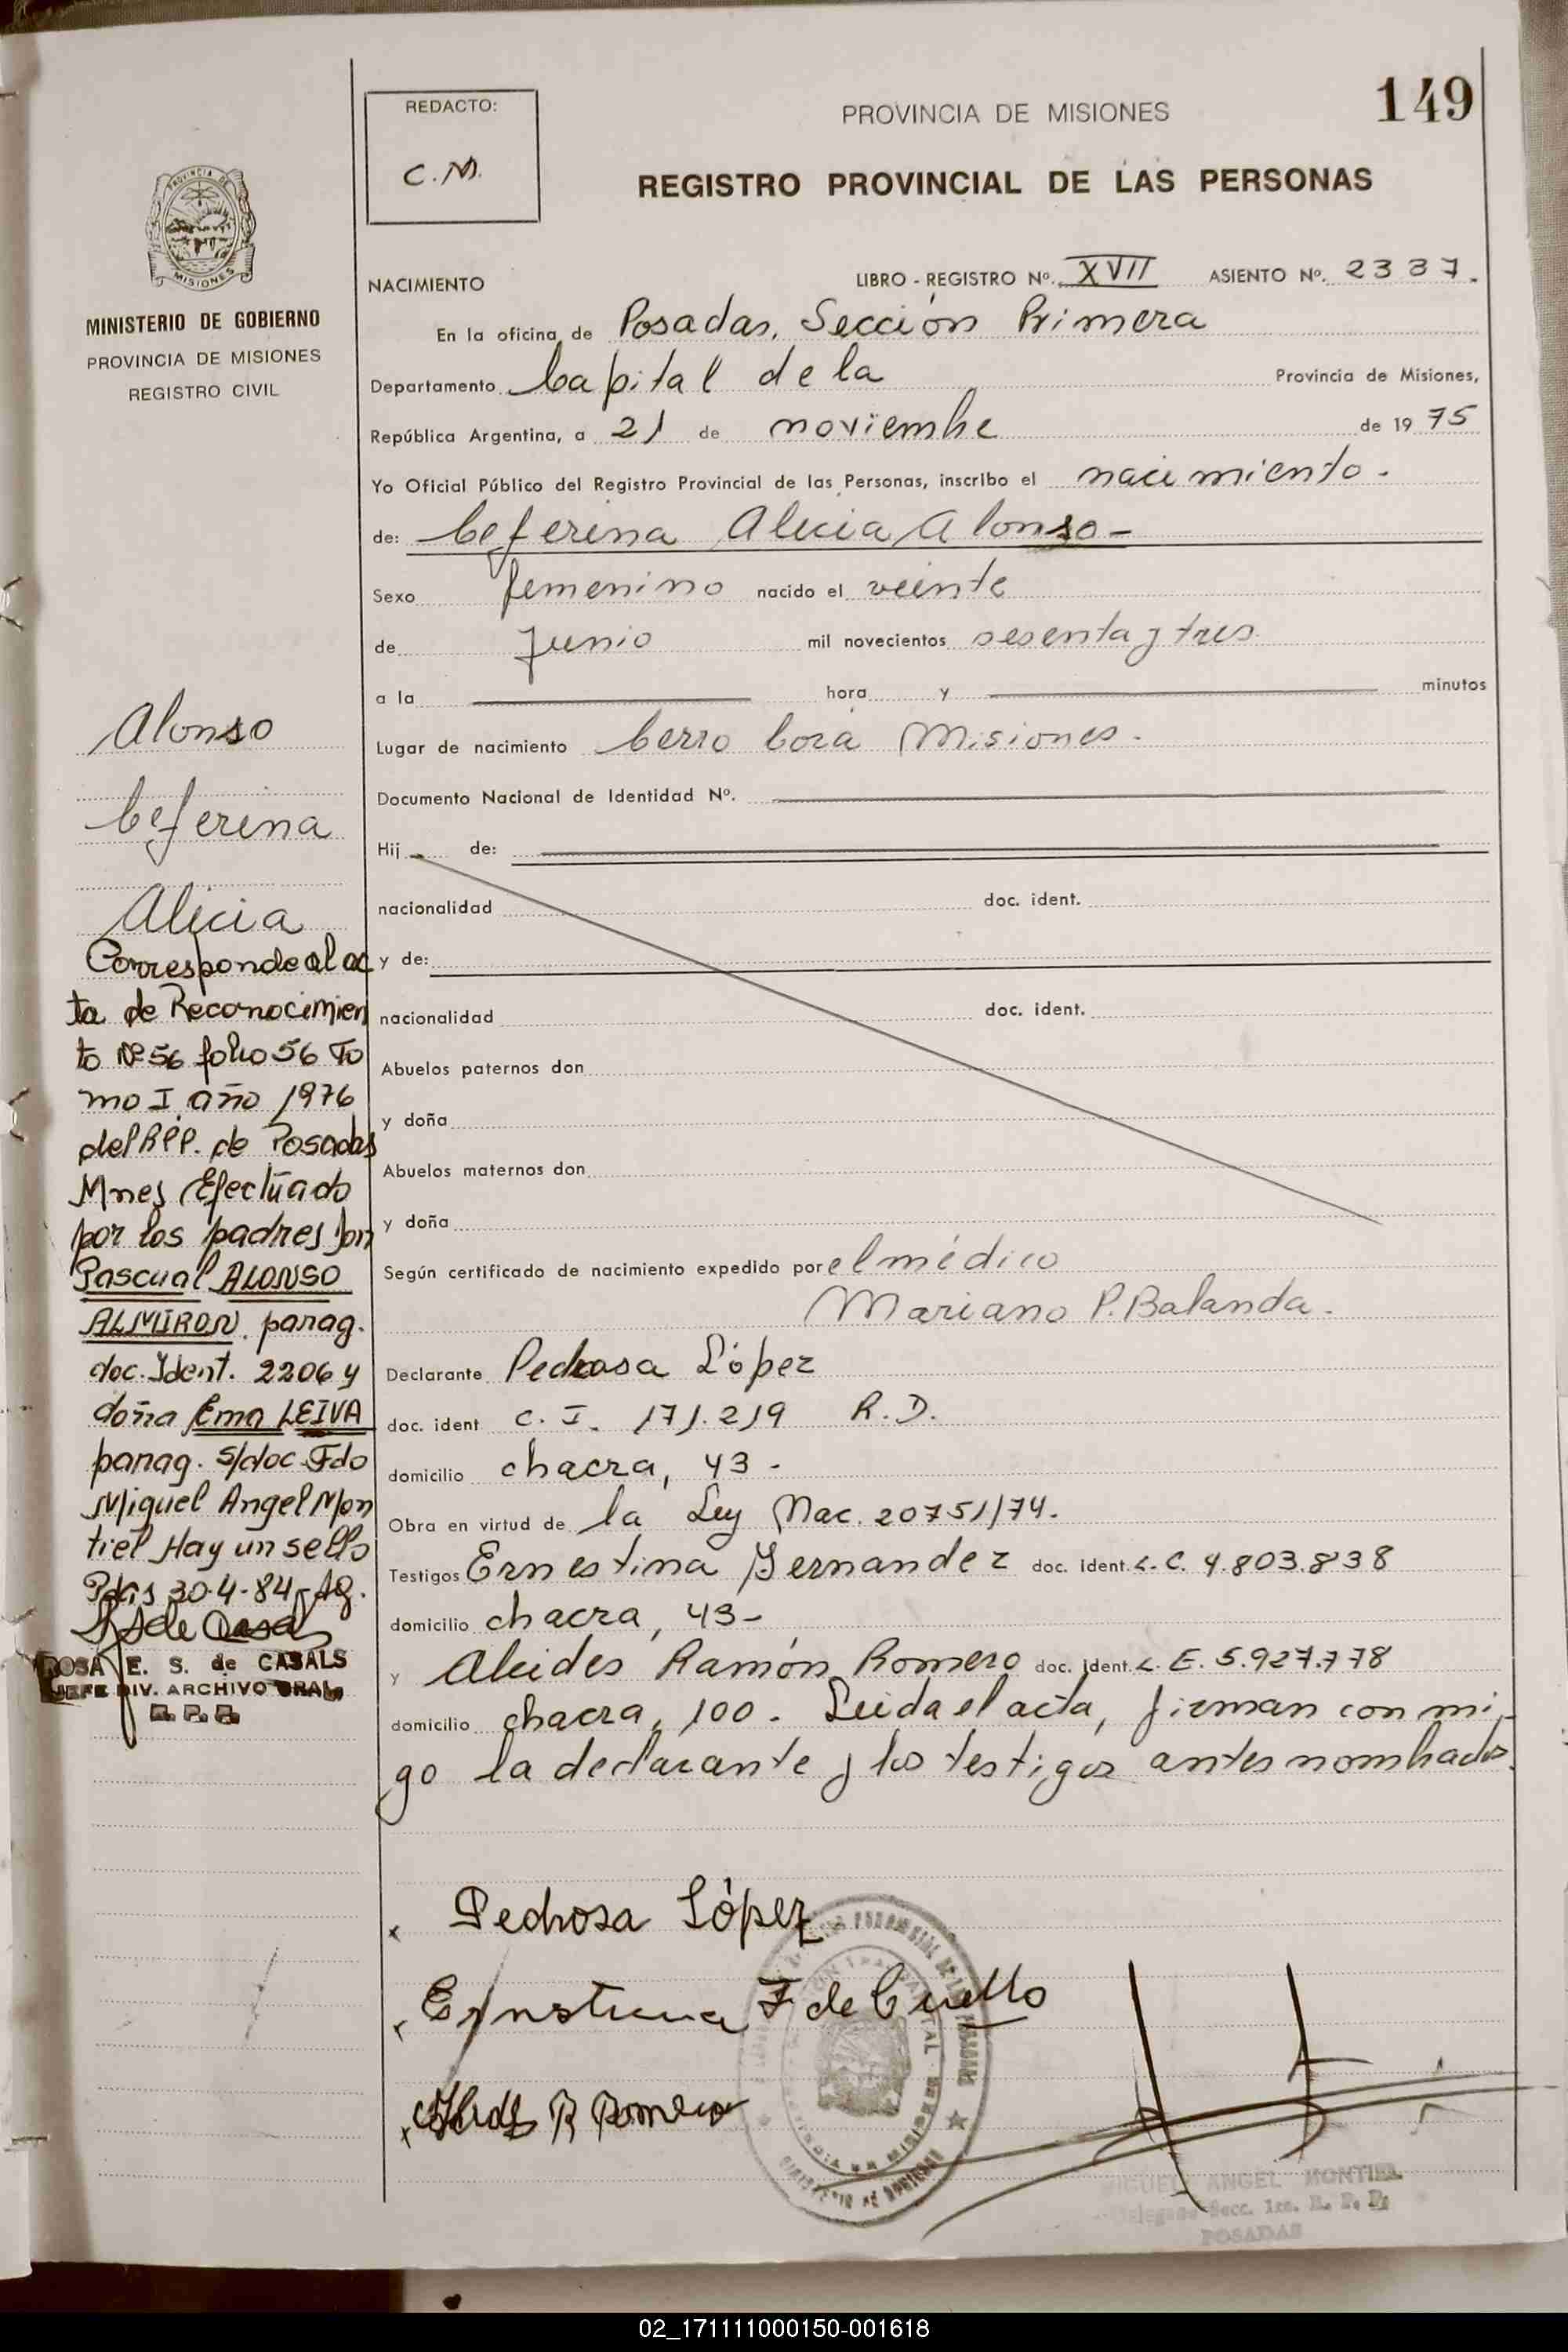 149
REDACTO:
C.M.
PROVINCIA DE MISIONES
REGISTRO PROVINCIAL DE LAS PERSONAS
PROVINCIA DE
MISIONES
MINISTERIO DE GOBIERNO
PROVINCIA DE MISIONES
REGISTRO CIVIL
NACIMIENTO LIBRO - REGISTRO Nº. XVII ASIENTO Nº. 2337.
En la oficina de Posadas, Sección Primera
Departamento Capital de la Provincia de Misiones,
República Argentina, a 21 de noviembre de 1975
Yo Oficial Público del Registro Provincial de las Personas, inscribo el nacimiento.
de: Ceferina Alicia Alonso-
Sexo femenino nacido el veinte
de Junio mil novecientos sesenta y tres
a la hora y minutos
Lugar de nacimiento Cerro Corá Misiones.
Documento Nacional de Identidad Nº.
Hij de:
nacionalidad doc. ident.
y de:
nacionalidad doc. ident.
Abuelos paternos don
y doña
Abuelos maternos don
y doña
Según certificado de nacimiento expedido por el médico
Mariano P. Balanda.
Declarante Pedrosa López
doc. ident C. I. 171.219 R.D.
domicilio chacra, 43-
Obra en virtud de la Ley Nac. 20751/74.
Testigos Ernestina Fernandez doc. ident. L.C. 4.803.838
domicilio chacra, 43-
y Alcides Ramón Romero doc. ident. L.E. 5.927.778
domicilio chacra, 100. Leida el acta, firman con mi
go la declarante y los testigos antes nombrados.
Alonso
Ceferina
Alicia
Corresponde al ac
ta de Reconocimien
to Nº 56 folio 56 To
mo I año 1976
del RPP. de Posadas
Mnes Efectuado
por los padres don
Pascual ALONSO
ALMIRON. parag.
doc. Ident. 2206 y
doña Ema LEIVA
parag. s/doc Fdo
Miguel Angel Mon
tiel Hay un sello
Pdas 30-4-84-Ag.
ROSA E. S. de CASALS
JEFE DIV. ARCHIVO GRAL.
R. P. P.
Pedrosa López
Ernstina F de Cuello
R Romero
MIGUEL ANGEL MONTIEL
Delegado Secc. 1ra. R. P. P.
POSADAS
02_171111000150-001618